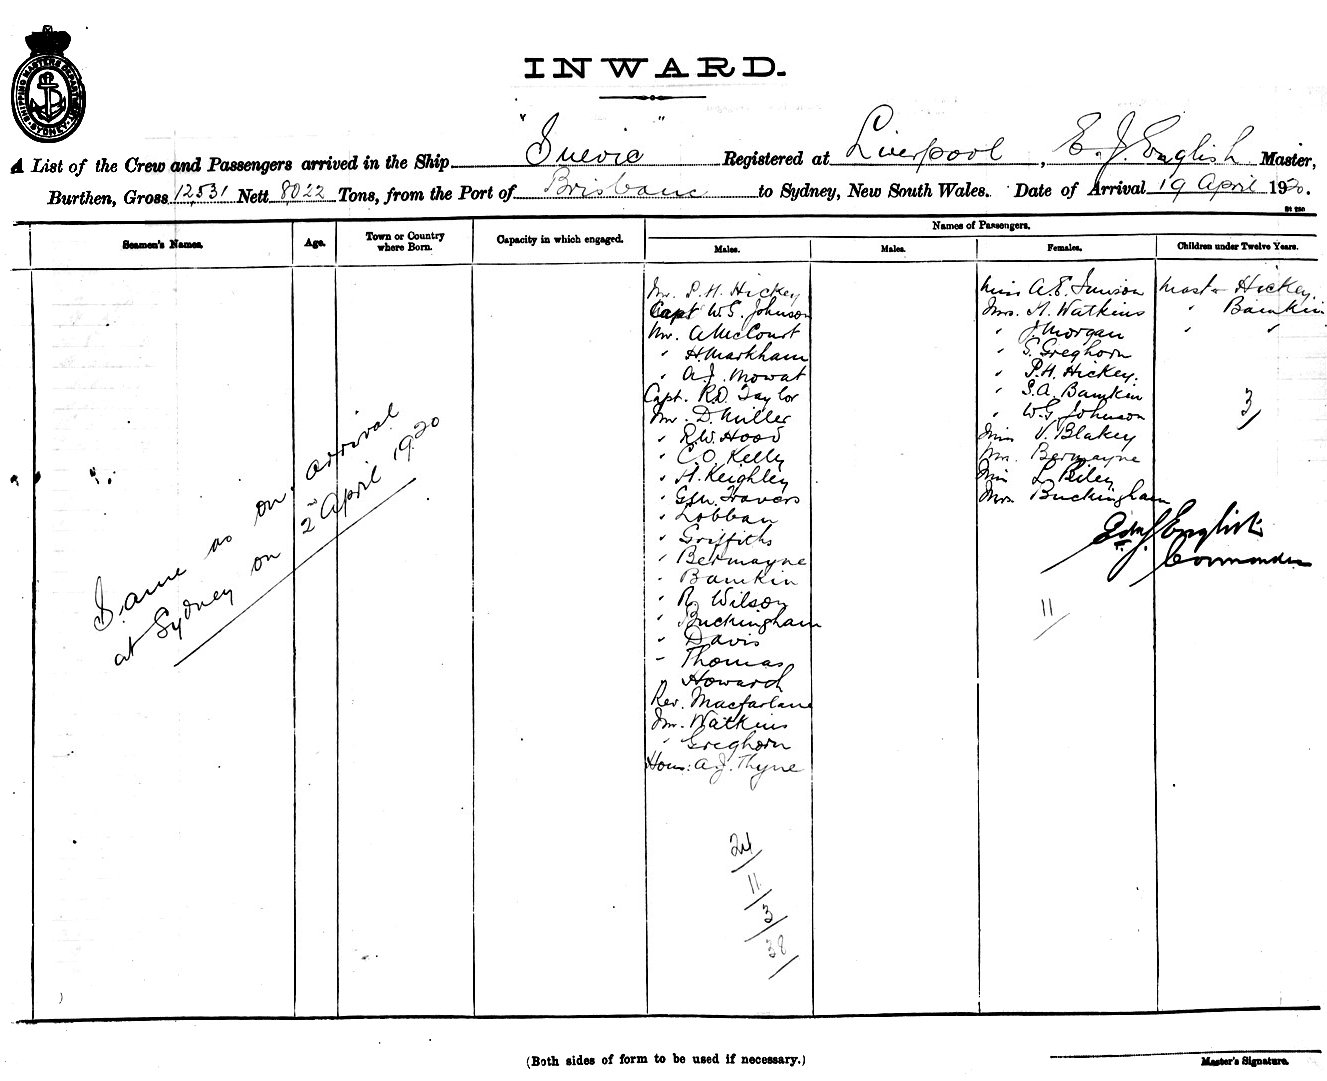 SHIPPING MASTERS DEPARTMENT SYDNEY
INWARD.
A List of the Crew and Passengers arrived in the Ship "Suevic" Registered at Liverpool, E. J. English Master,
Burthen, Gross 12531 Nett 8022 Tons, from the Port of Brisbane to Sydney, New South Wales. Date of Arrival 19 April 1920.
Names of Passengers.
Seamen's Names. Age. Town or Country where Born. Capacity in which engaged. Males. Males. Females. Children under Twelve Years.
Mr. P. H. Hickey
Capt W. G. Johnson
Mr. A McCourt
" H Markham
" A. J. Mowat
Capt. R. D. Taylor
Mr. D. Miller
" R. W. Hood
" C O Kelly
" H. Keighley
" Travers
" Lobban
" Griffiths
" Bermayne
" Bamkin
" R. Wilson
" Buckingham
" Davis
" Thomas
" Howard
Rev. Macfarlane
Mr. Watkins
" Greghorn
Hon: A. J. Thyne
24
11
3
38
Miss A. E.
Mrs. H. Watkins
" J Morgan
" S. Greghorn
" P. H. Hickey.
" S. A. Bamkin
" W. G. Johnson
Miss V. Blakey
Mrs. Bermayne
Miss L Biley
Mrs. Buckingham
11
Master Hickey.
" Bamkin
" "
3
Same as on arrival
at Sydney on 2nd April 1920
Edw J English
Commander
(Both sides of form to be used if necessary.)
Master's Signature.